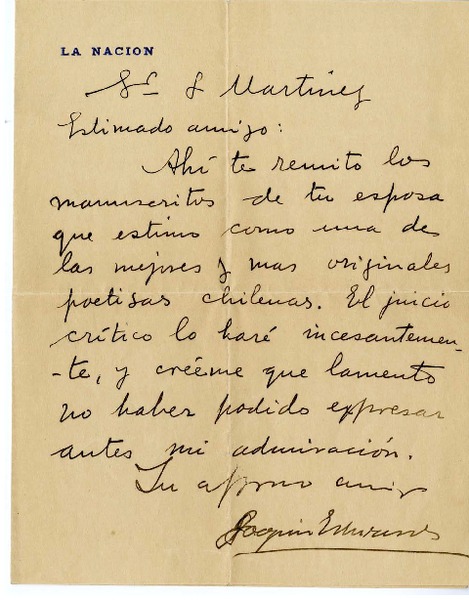 LA NACION
Sr L Martínez
Estimado amigo:
Ahí te remito los
manuscritos de tu esposa
que estimo como una de
las mejores y mas originales
poetisas chilenas. El juicio
crítico lo haré incesantemen-
-te, y créeme que lamento
no haber podido expresar
antes mi admiración.
Tu affmo amigo
Joaquin Edwards